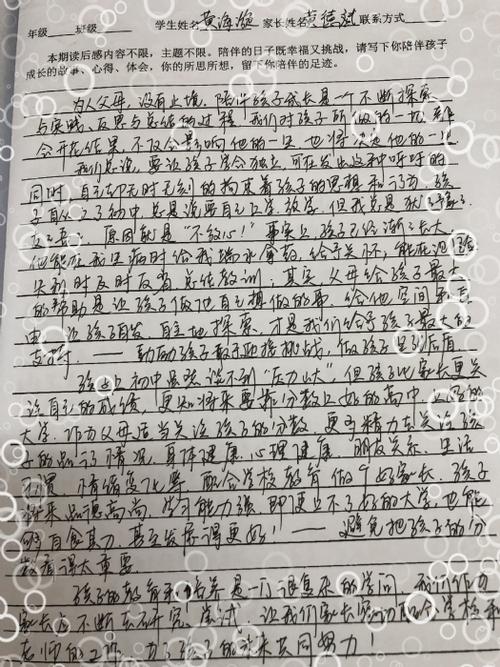 年级 班级 学生姓名 黄海 家长姓名 黄 斌 联系方式
本期读后感内容不限,主题不限。陪伴的日子既幸福又挑战,请写下你陪伴孩子
成长的故事、心得、体会,你的所思所想,留下你陪伴的足迹。
为人父母,没有止境,陪伴孩子成长是一个不断探索
与实践、反思与总结的过程。我们对孩子所做的一切,都
会开花结果,不仅会影响他的一生,也将决定他的一生。
我们总说,要让孩子学会独立,可在发出这种呼吁的
同时,自己却无时无刻的拘束着孩子的思想和行为。孩
子自从上了初中,总是说要自己上学、放学,但我总是
原因就是“不放心!”事实上孩子已经渐渐长大,
他能在我生病时给我端水拿药,给予关怀,能在
时及时反省、总结教训,其实,父母给孩子最大
的帮助是让孩子做他自己想做的事,给他空间和
由,让孩子自发、自主地探索,才是我们给予孩子最大的
支持——鼓励孩子敢于迎接挑战,做孩子坚强后盾
孩子上初中虽然谈不到“压力山大”,但孩子比家长更关
注自己的成绩,更知将来要靠分数上好的高中、
大学,作为父母适当关注孩子的分数,更多精力去关注孩
子的品行情况、身体健康、心理健康、朋友关系、生活
习惯、情绪变化等,配合学校教育做个好家长,孩子
将来品德高尚,学习能力强,即使上不了好的大学,也能
够自食其力,甚至发展得更好!——避免把孩子的分
数看得太重要
孩子的教育和培养是一门很复杂的学问,我们作为
家长应不断去研究、尝试,让我们家长 配合学校和
老师的工作,为了孩子的未来共同努力!